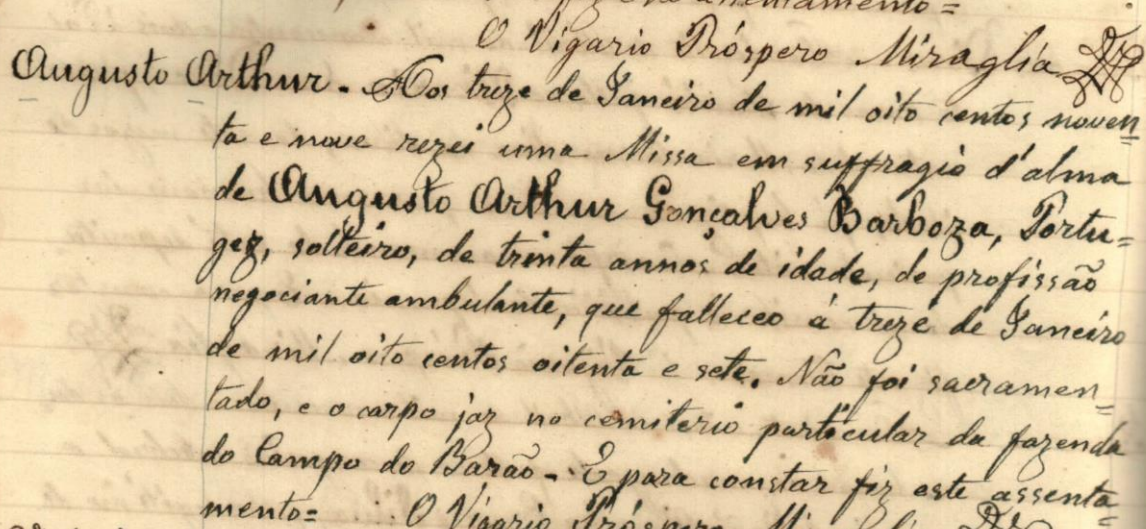 assentamento=
O Vigario Próspero Miraglia
Augusto Arthur. Aos treze de Janeiro de mil oito centos noven=
ta e nove rezei uma Missa em suffragio d'alma
de Augusto Arthur Gonçalves Barboza, Portu=
gez, solteiro, de trinta annos de idade, de profissão
negociante ambulante, que falleceo á treze de Janeiro
de mil oito centos oitenta e sete. Não foi sacramen=
tado, e o corpo jaz no cemiterio particular da fazenda
do Campo do Barão - E para constar fiz este assenta=
mento= O Vigario Próspero